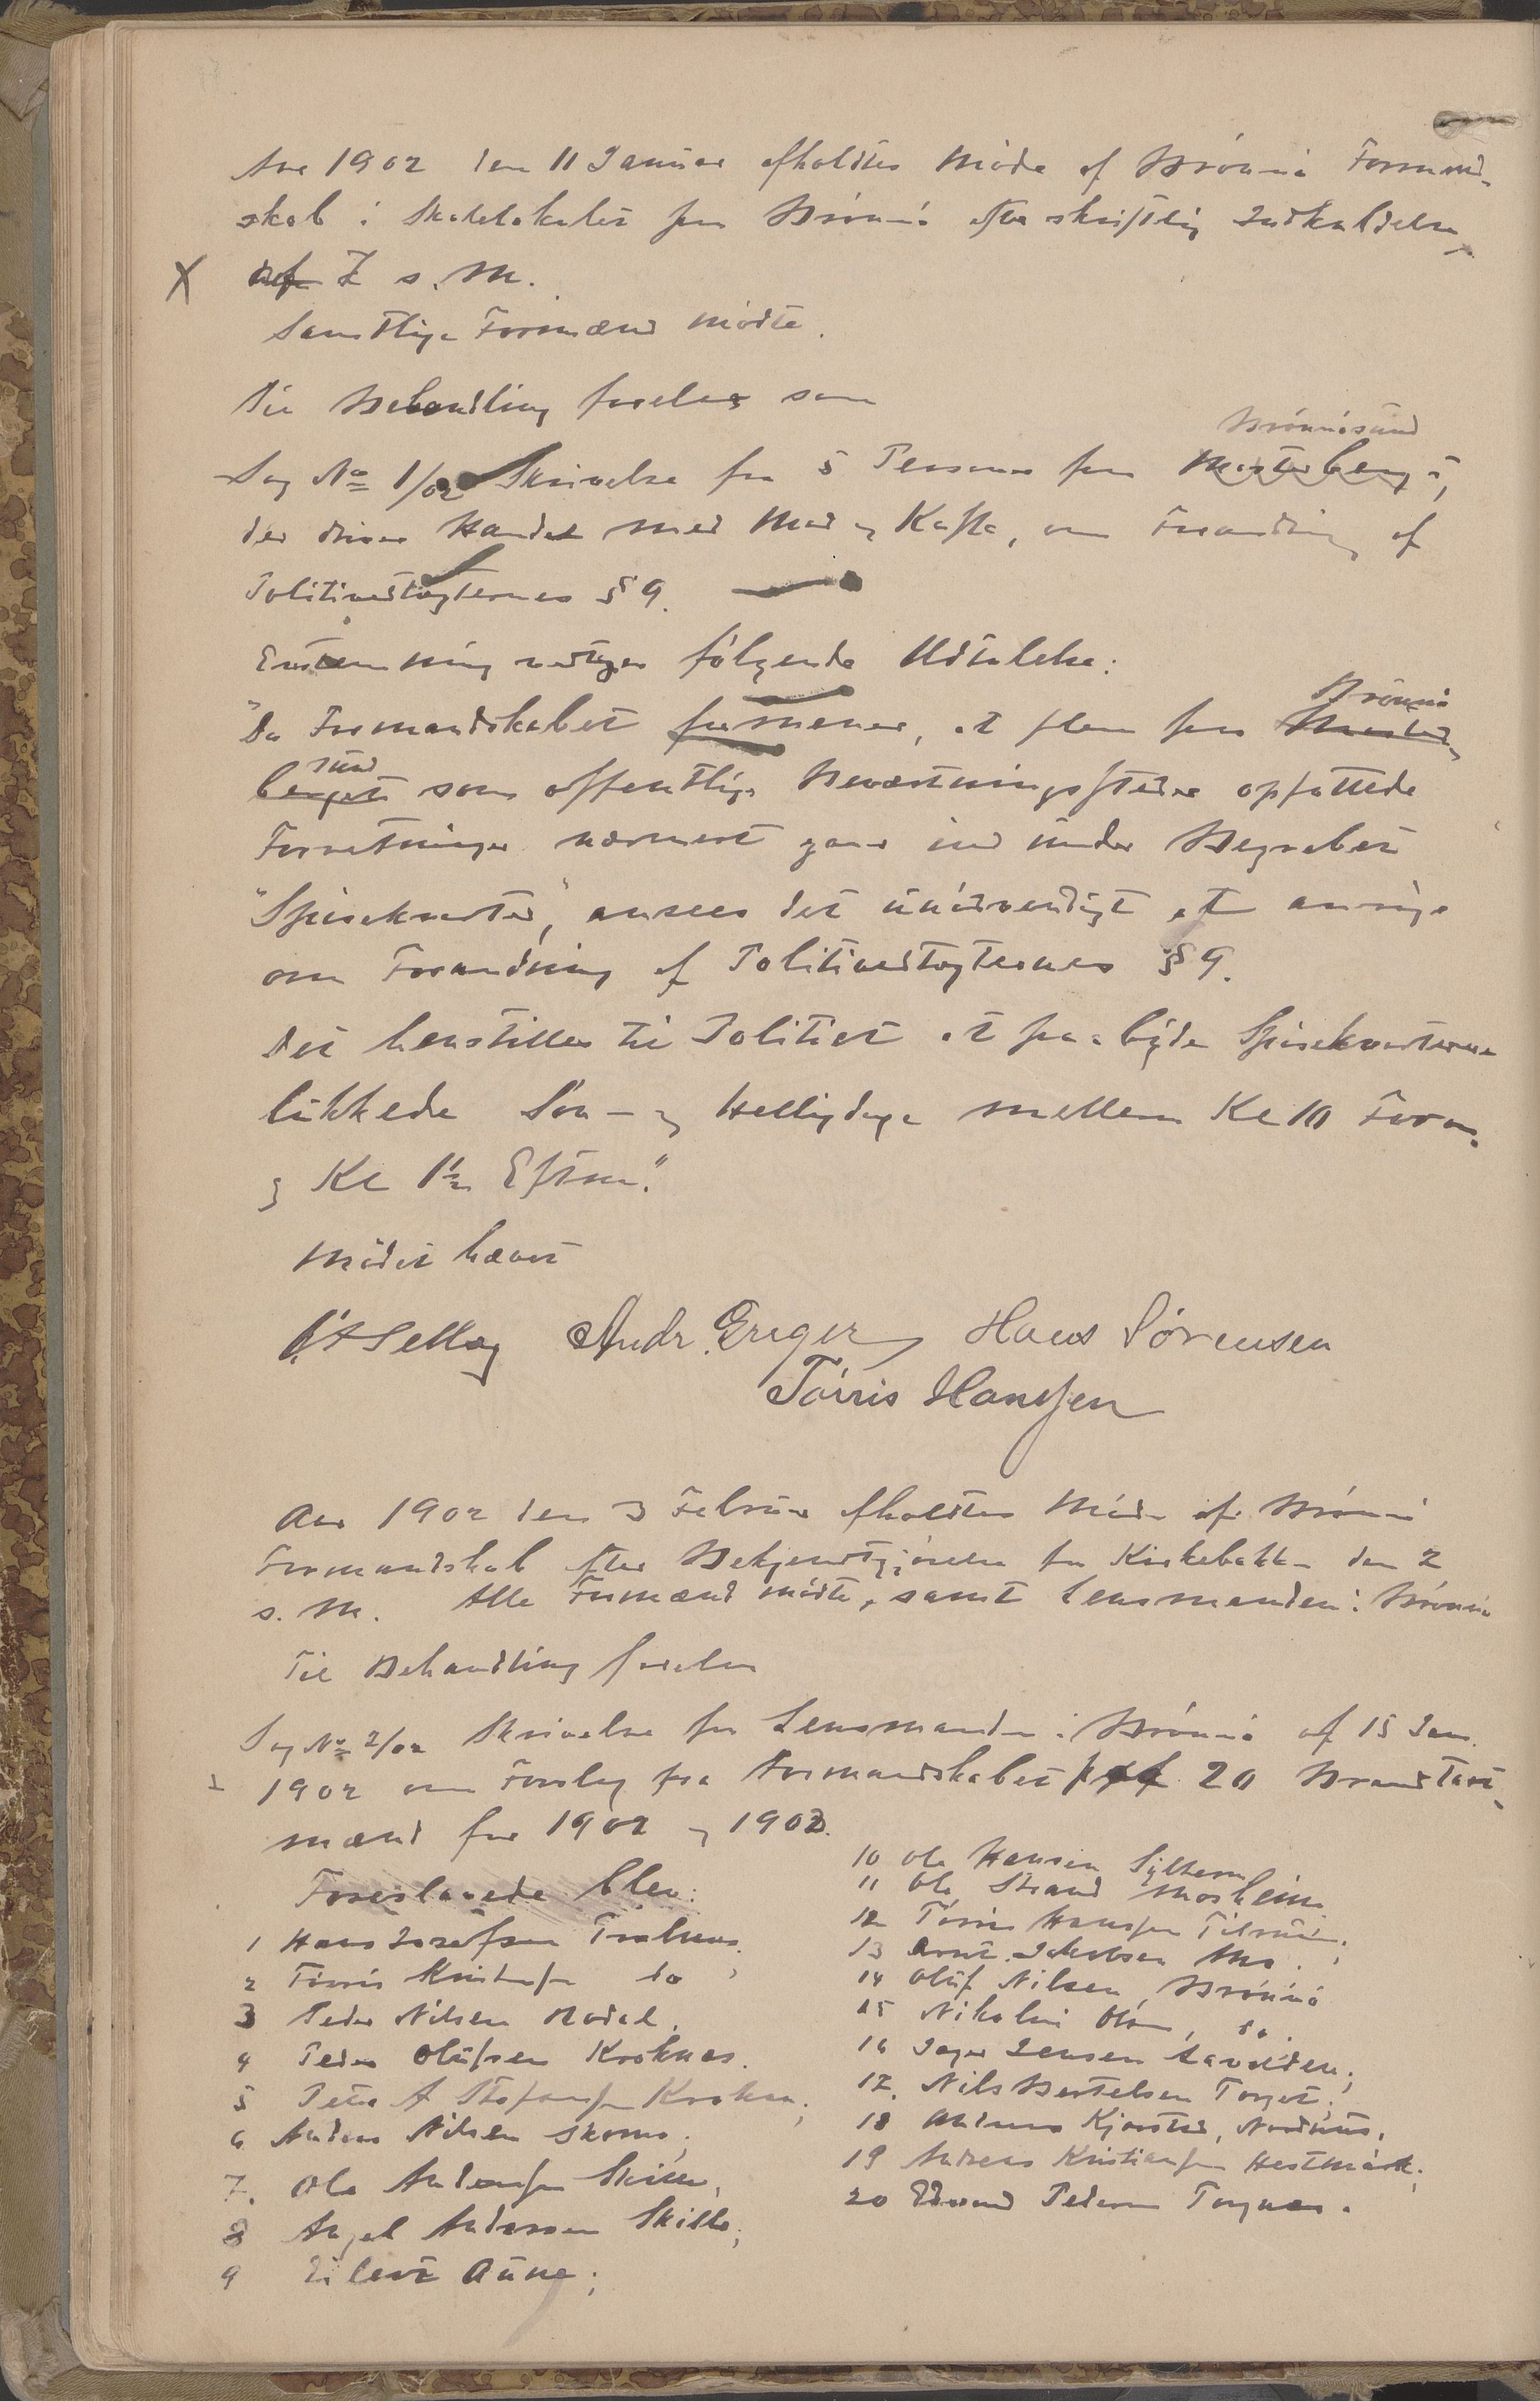 Aar 1902 den 11 Januar afholdtes Møde af Brønnø Formand-
skab i Skolelokalet paa Brønnø efter skriftlig Indkaldelse
X af 7 s. M.
Samtlige Formænd mødte.
Til Behandling forelaa som
Sag No 1/02 Skrivelse fra 5 Personer paa Brønnøsund
der driver Handel med Mad og Kaffe, om Forandring af
Politivedtægternes § 9.
Enstemmig vedtoges følgende Udtalelse:
"Da Formandskabet formener, at flere paa Brønnø-
sund som offentlige Beværtningssteder opfattede
Forretninger nærmest gaar ind under Begrebet
"Spisekvarter", ansees det unødvendigt at andrage
om Forandring af Politivedtægternes § 9.
Det henstilles til Politiet at paabyde Spisekvarterene
lukkede Søn- og Helligdage mellem Kl 10 Form.
og Kl 1½ Efterm."
Mødet hævet
Andr. Greger Hans Sørensen
Tørris Hanssen
Aar 1902 den 3 Februar afholdtes Møde af Brønnø
Formandskab efter Bekjendtgjørelse fra Kirkebakken den 2
s. M. Alle Formænd mødte, samt Lensmanden i Brønnø
Til Behandling forelaa
Sag No 2/02 Skrivelse fra Lensmanden i Brønnø af 15 Jan.
1902 om Forslag fra Formandskabet paa 20 Brandtaxt-
mænd for 1902 og 1903.
Foreslaaede blev:
1 Hans Josefsen
2 Tørris Kristensen do
3 Peder Nilsen
4 Peder Olufsen Kroknes.
5 Peter A
6 Anders Nilsen
7. Ole Andersen Skille,
8 Angel Andersen Skille;
9 Eilert Aune;
10 Ole Hansen
11 Ole Strand Mosheim
12 Tørris Hanssen Tilrem;
13 Arnt Jakobsen Mo.
14 Oluf Nilsen, Brønnø
15 Nikolai Olsen, do.
16 Jensen
17. Nils Bertelsen Torget;
18
19 Andreas Kristiansen Hestmark;
20 Edvard Pedersen Torgnes.